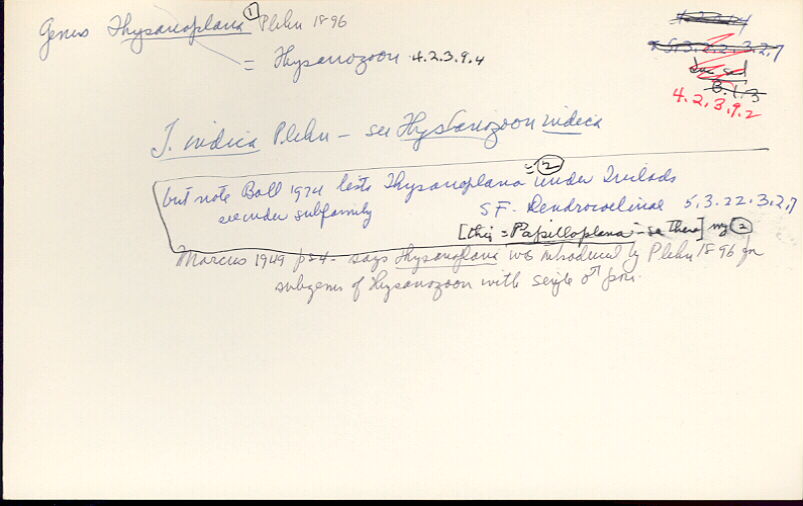 Genus Thysanoplana ① Plehn 1896
= Thysanozoon 4.2.3.9.4
5.3.22.3.2.7
B.1.3
4.2.3.9.2
T. indica Plehn – see Thysanozoon indica
= ②
but note Ball 1974 lists Thysanoplana under Triclads
see under subfamily SF. Dendrocoelinae 5.3.22.3.2.7
[this = Papilloplana – see there] my ②
Marcus 1949 p84 - says Thysanoplana was introduced by Plehn 1896 for
subgenus of Thysanozoon with single ♂ pore.